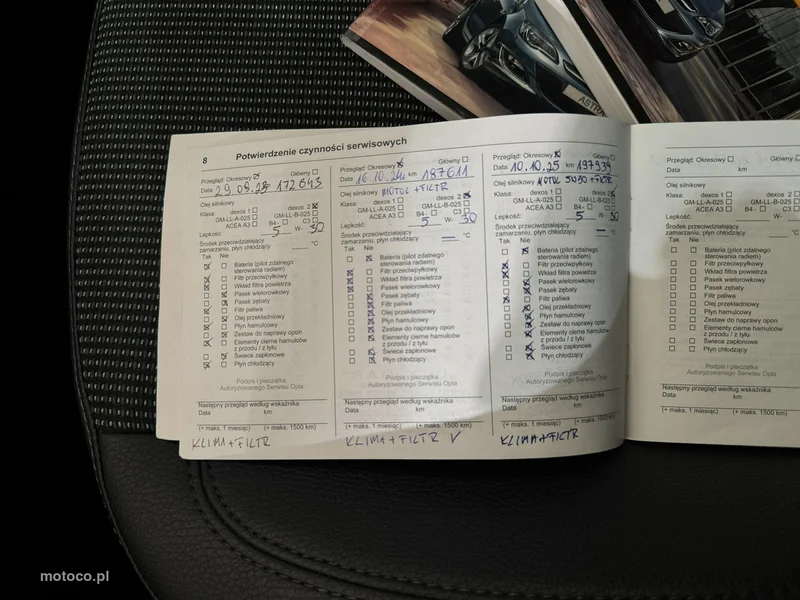 ASTON
8 Potwierdzenie czynności serwisowych
Przegląd: Okresowy Główny
Data 29.09.23 172643
Olej silnikowy
Klasa: dexos 1 dexos 2
GM-LL-A-025 GM-LL-B-025
ACEA A3 B4- C3
Lepkość: 5 W- 30
Środek przeciwdziałający
zamarzaniu, płyn chłodzący °C
Tak Nie
Bateria (pilot zdalnego
sterowania radiem)
Filtr przeciwpyłkowy
Wkład filtra powietrza
Pasek wielorowkowy
Pasek zębaty
Filtr paliwa
Olej przekładniowy
Płyn hamulcowy
Zestaw do naprawy opon
Elementy cierne hamulców
z przodu / z tyłu
Świece zapłonowe
Płyn chłodzący
Podpis i pieczątka
Autoryzowanego Serwisu Opla
Następny przegląd według wskaźnika
Data km
(+ maks. 1 miesiąc) (+ maks. 1500 km)
KLIMA+FILTR
Przegląd: Okresowy Główny
Data 16.10.24 187611
Olej silnikowy MOTUL + FILTR
Klasa: dexos 1 dexos 2
GM-LL-A-025 GM-LL-B-025
ACEA A3 B4- C3
Lepkość: 5 W- 30
Środek przeciwdziałający
zamarzaniu, płyn chłodzący — °C
Tak Nie
Bateria (pilot zdalnego
sterowania radiem)
Filtr przeciwpyłkowy
Wkład filtra powietrza
Pasek wielorowkowy
Pasek zębaty
Filtr paliwa
Olej przekładniowy
Płyn hamulcowy
Zestaw do naprawy opon
Elementy cierne hamulców
z przodu / z tyłu
Świece zapłonowe
Płyn chłodzący
Podpis i pieczątka
Autoryzowanego Serwisu Opla
Następny przegląd według wskaźnika
Data km
(+ maks. 1 miesiąc) (+ maks. 1500 km)
KLIMA+FILTR V
Przegląd: Okresowy Główny
Data 10.10.25 km 197939
Olej silnikowy MOTUL 5W30 + FILTR
Klasa: dexos 1 dexos 2
GM-LL-A-025 GM-LL-B-025
ACEA A3 B4- C3
Lepkość: 5 W- 30
Środek przeciwdziałający
zamarzaniu, płyn chłodzący — °C
Tak Nie
Bateria (pilot zdalnego
sterowania radiem)
Filtr przeciwpyłkowy
Wkład filtra powietrza
Pasek wielorowkowy
Pasek zębaty
Filtr paliwa
Olej przekładniowy
Płyn hamulcowy
Zestaw do naprawy opon
Elementy cierne hamulców
z przodu / z tyłu
Świece zapłonowe
Płyn chłodzący
Podpis i pieczątka
Autoryzowanego Serwisu Opla
Następny przegląd według wskaźnika
Data km
(+ maks. 1 miesiąc) (+ maks. 1500 km)
KLIMA+FILTR
Przegląd: Okresowy Główny
Data km
Olej silnikowy
Klasa: dexos 1 dexos 2
GM-LL-A-025 GM-LL-B-025
ACEA A3 B4- C3
Lepkość: W-
Środek przeciwdziałający
zamarzaniu, płyn chłodzący °C
Tak Nie
Bateria (pilot zdalnego
sterowania radiem)
Filtr przeciwpyłkowy
Wkład filtra powietrza
Pasek wielorowkowy
Pasek zębaty
Filtr paliwa
Olej przekładniowy
Płyn hamulcowy
Zestaw do naprawy opon
Elementy cierne hamulców
z przodu / z tyłu
Świece zapłonowe
Płyn chłodzący
Podpis i pieczątka
Autoryzowanego Serwisu Opla
Następny przegląd według wskaźnika
Data km
(+ maks. 1 miesiąc) (+ maks. 1500 km)
motoco.pl